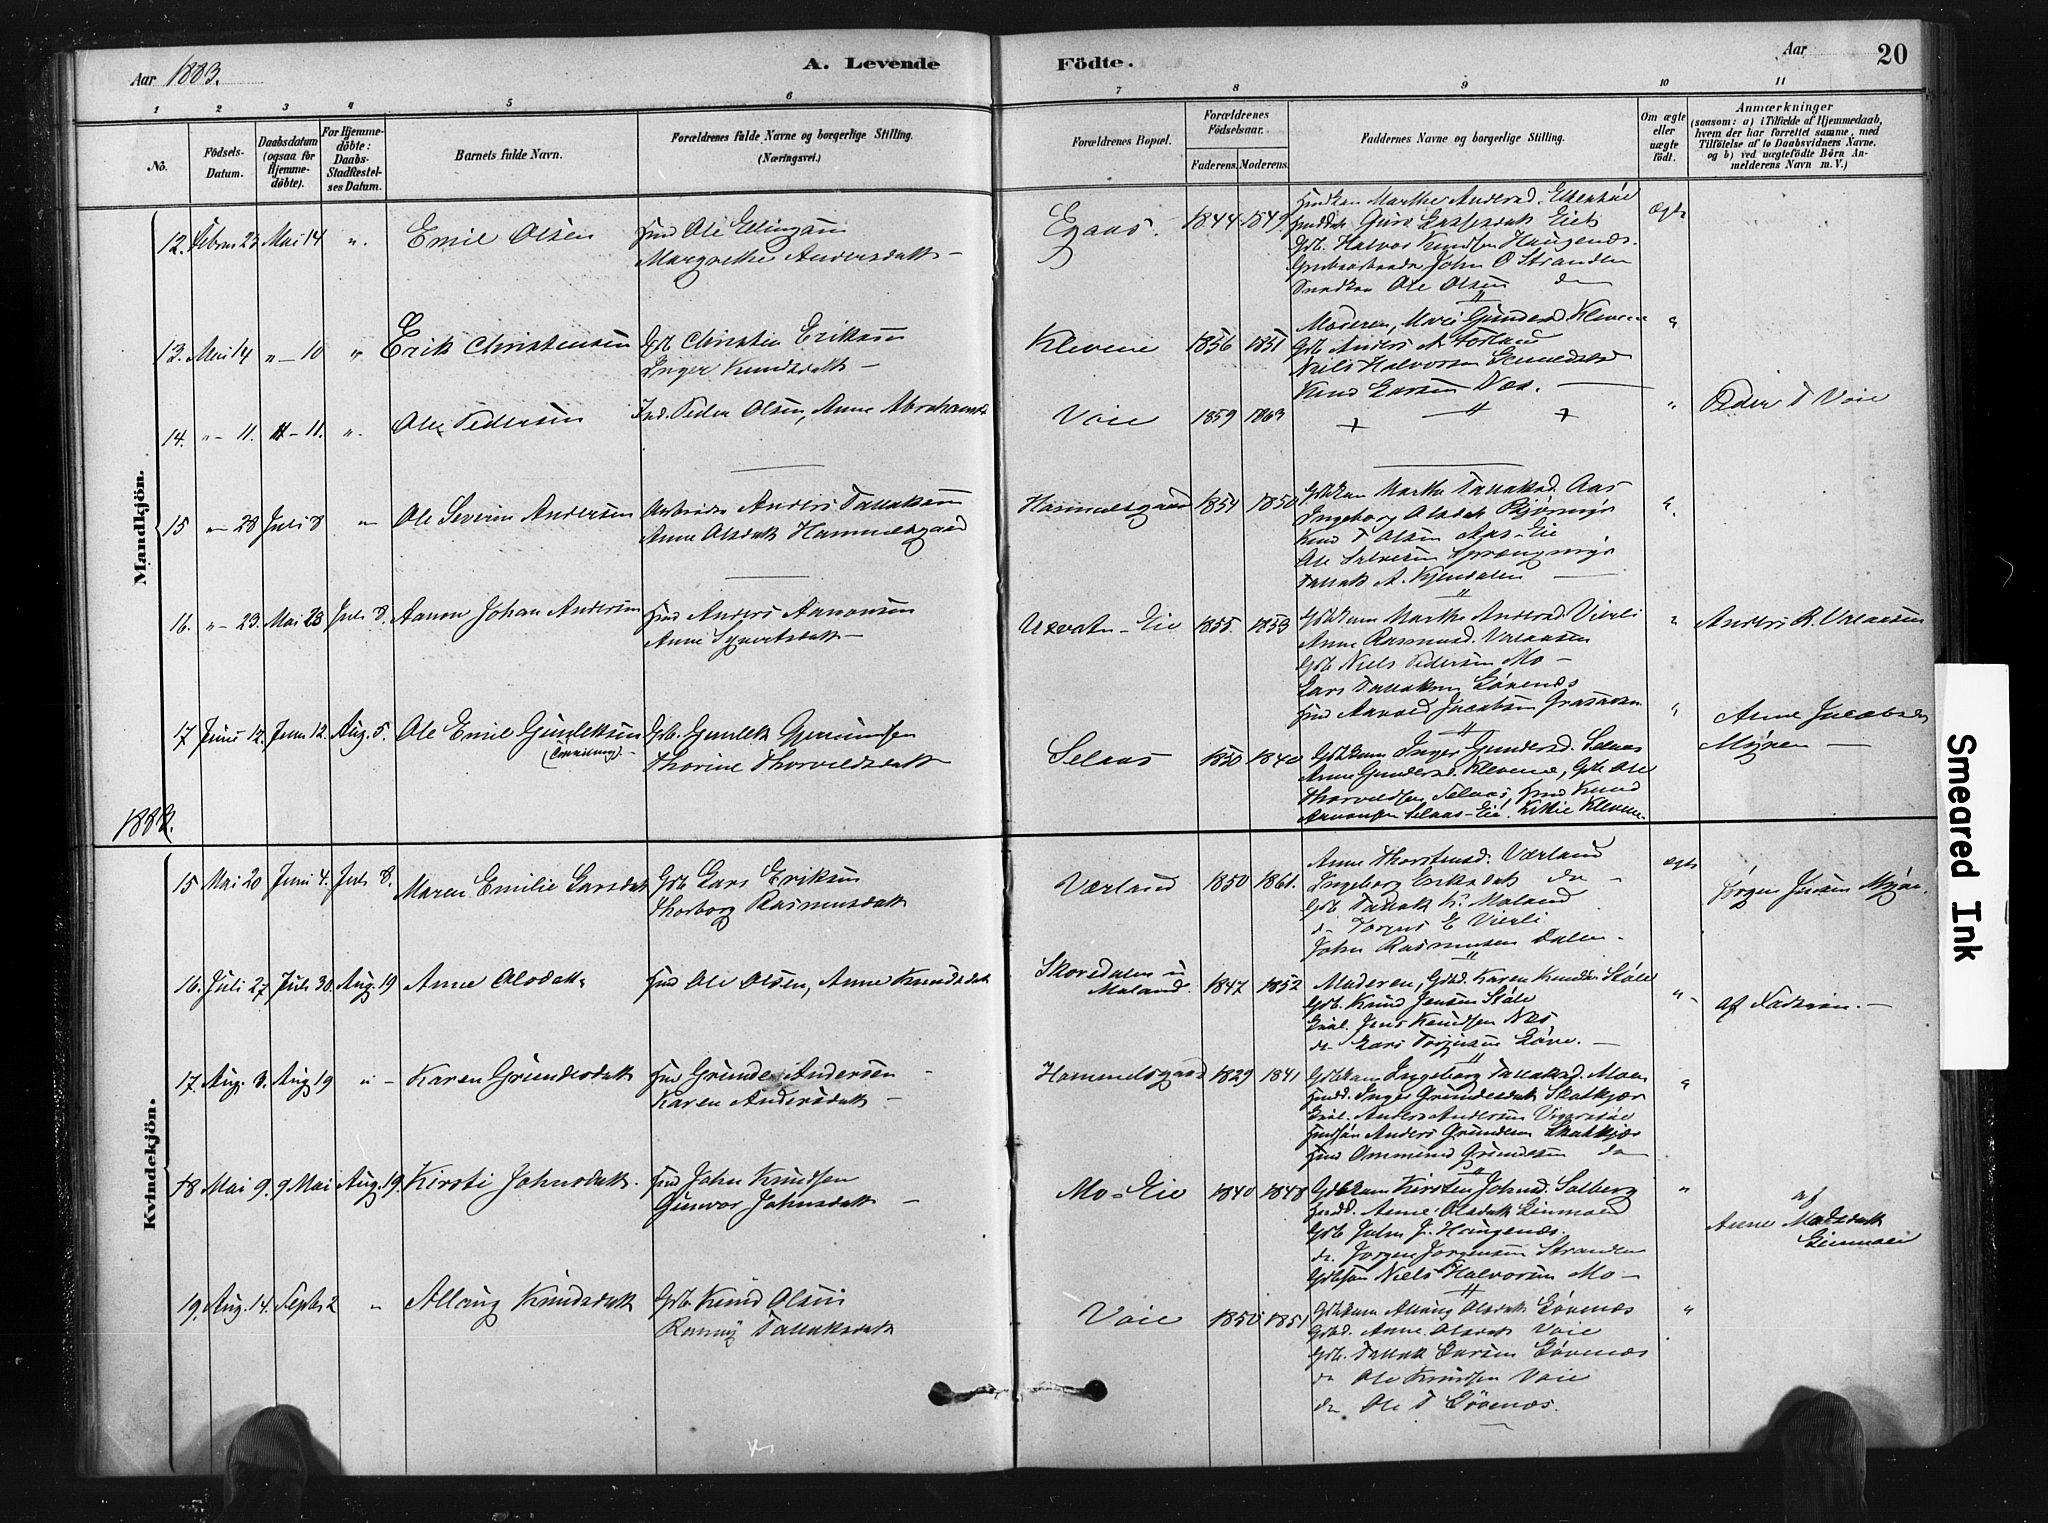 Aar 1883.
A. Levende Födte.
Aar
20
1 2 3 4 5 6 7 8 9 10 11
No.
Födsels-Datum.
Daabsdatum (ogsaa för Hjemme-döbte).
For Hjemme-döbte: Daabs-Stadfæstel-ses Datum.
Barnets fulde Navn.
Forældrenes fulde Navne og borgerlige Stilling. (Næringsvei.)
Forældrenes Bopæl.
Forældrenes Födselsaar.
Faderens. Moderens.
Faddernes Navne og borgerlige Stilling.
Om ægte eller uægte födt.
Anmærkninger
(saasom: a) i Tilfælde af Hjemmedaab, hvem der har forrettet samme, med Tilföielse af to Daabsvidners Navne. og b) ved uægtefödte Börn An-melderens Navn m. V.)
Mandkjön.
12. Mai 14 " Emil Olsen
Ole Ellingsen
Margrethe Andersdatt
Egaas. 1844 1849
Marthe Andersd.
Halvor Knudsen Haugenæs.
John O Stranden
Ole Olsen do
Ægte
13. Mai 14 " - 10 " Erik Christensen
Gdb Christen Eriksen
Inger Knudsdatt
Klevene 1856 1851
Moderen, Mari Gundersd. Klevene
Gdb Anders A Torland
Niels Halvorsen
Knud Larsen Næs.
14. " - 11. - 11. " Ole Pedersen
Ind. Peder Olsen, Anne Abrahamsd
Voie 1859 1863
Peder T Voie
15 " - 28 Juli 8 " Ole Severin Andersen
Anders Tallaksen
Anne Olsdatt Hammelsgaard
Hammelsgaard 1854 1850
Gdbkam Marthe Tallaksd. Aas
Ingeborg Olsdatt
Knud T Olsen Aas-Eie
Ole Salvesen
Tallak A. Kjendalen
16. " - 23. Mai 23 Juli 8. Aanon Johan Andersen
Hmd Anders Aanonsen
Anne Syvertsdatt
Uxvatn-Eie 1855. 1853
Gdbkam Marthe Andersd. Vierli
Anne Rasmusd. Valaasen
Gdb Niels Pedersen Mo
Lars Tallaksen Lövenæs
Hmd Aavold Jacobsen
Anders R. Valaasen
17 Juni 12. Juni 12. Aug. 5. Ole Emil Gunleksen
Gdb. Gunlek Gjermundsen
Thorine Thorvaldsdatt
Selaas 1850 1840
Gdbkam Inger Gundersd. Selaas
Anne Gundersd. Klevene, Gdb Ole
Thorvaldsen Selaas, Hmd Knud
Aanonsen Selaas-Eie.
Anne Jacobsen
Mojnen
1883.
Kvindekjön.
15 Mai 20 Juni 4. Juli 8. Maren Emilie Larsdatt
Gdb Lars Eriksen
Thorborg Rasmusdatt
Værland 1850 1861.
Anne Thorstensd. Værland
Ingeborg Eriksdatt do
Gdb Tallak K. Moland
do Torjus E Vierli
John Rasmussen Dalen
ægte
16. Juli 27 Juli 30. Aug. 19 Anne Olsdatt
Hmd Ole Olsen, Anne Knudsdatt
Skovedalen u Moland. 1847 1852
Moderen, Gdbd. Karen Knudsd Støle
Gdb. Knud Jensen Støle
Jens Knudsen Næs
do Lars Torjusen
af Faderen.
17. Aug. 3. Aug 19 " Karen Gundersdatt
Hmd Gunder Andersen
Karen Andersdatt
Hammelsgaard 1829 1841
Gdbkam Ingeborg Tallaksd. Moen
Hmdd. Inger Gundersdatt Skatkjær
Anders Andersen
Hmdsøn Anders Gundersen Skatkjær
Hmd Ommund Gundersen do
18 Mai 9. 9 Mai Aug. 19. Kirsti Johnsdatt.
Hmd John Knudsen
Gunvor Johnsdatt
Mo-Eie 1840 1848
Gdbkam Kirsten Johnsd. Solberg
Hmdd. Anne Olsdatt
Gdb John J. Haugenæs.
do. Jørgen Jørgensen Stranden
Gdbsøn Niels Halvorsen Mo
af
Anne Madsdatt
19. Aug. 14. Septr 2 " Allaug Knudsdatt
Gdb Knud Olsen
Ronnaug Tallaksdatt
Voie 1850 1851
Gdbkam Allaug Olsdatt Lövenæs
Gdbd. Anne Olsdatt Voie
Gdb. Tallak Larsen Lövenæs
do Ole Knudsen Voie
do Ole T Lövenæs.
Smeared Ink